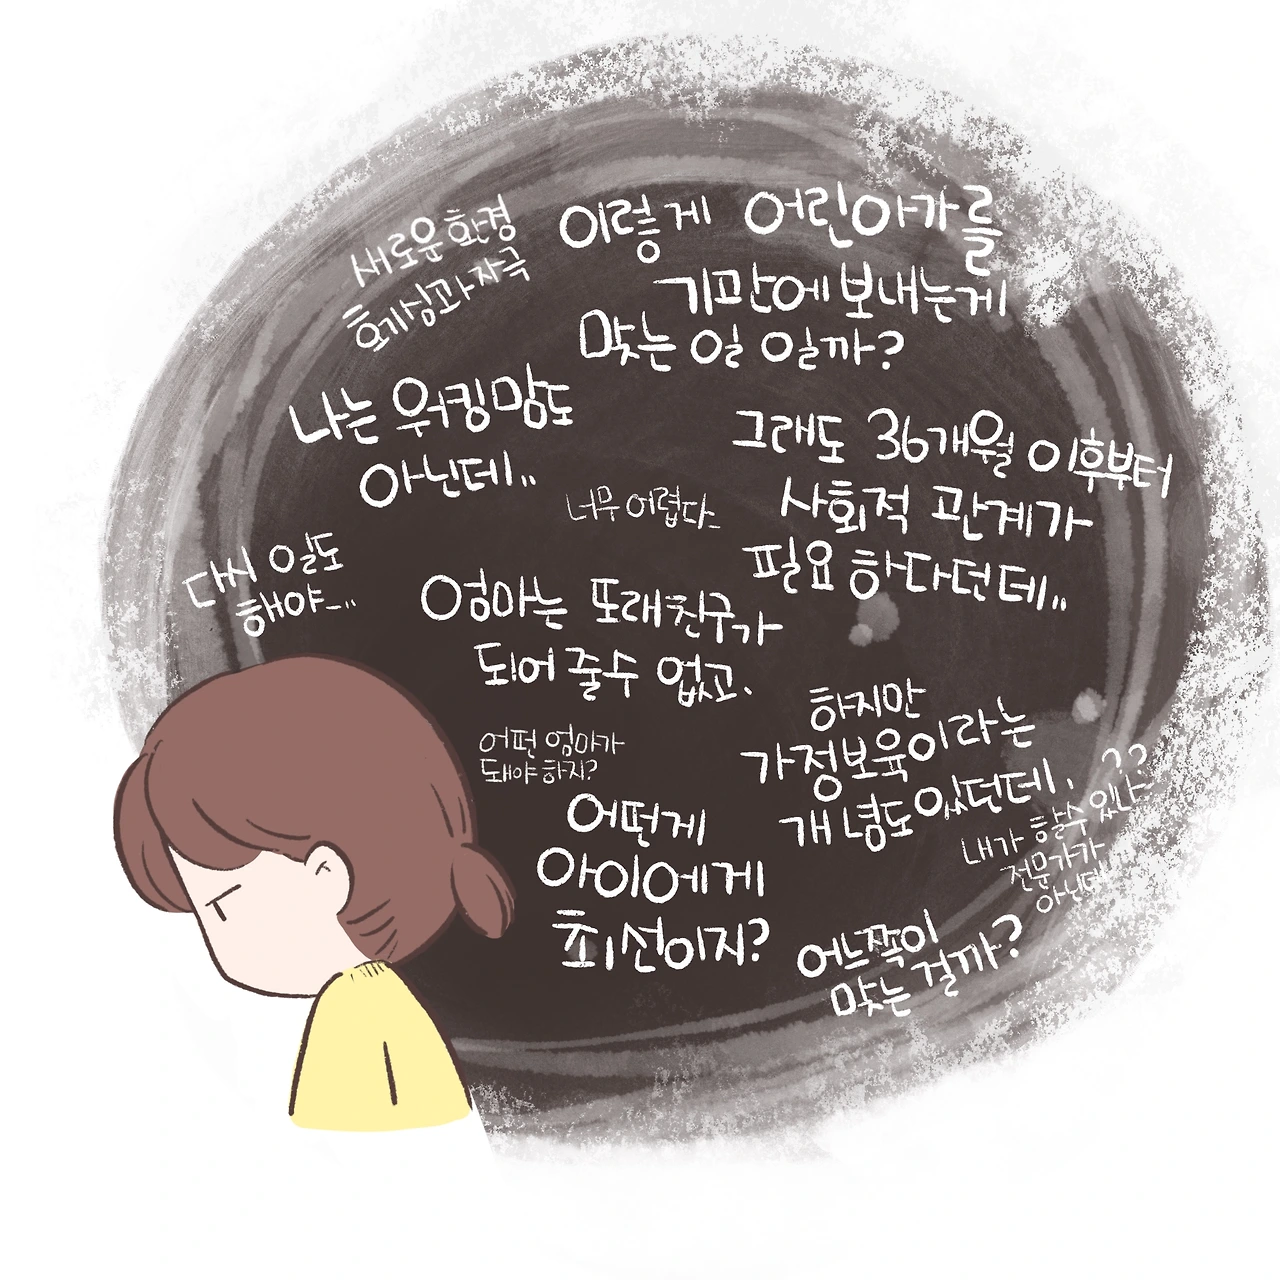 새로운 환경
호기심과 자극
이렇게 어린아가를
기관에 보내는게
맞는 일 일까?
나는 워킹맘도
아닌데..
그래도 36개월 이후부터
사회적 관계가
필요하다던데..
너무 어렵다..
다시 일도
해야...
엄마는 또래친구가
되어 줄수 없고.
어떤 엄마가
돼야 하지?
하지만
가정보육이라는
개념도있던데.
어떤게
아이에게
최선이지?
내가 할수 있나??
전문가가
아닌데
어느쪽이
맞는 걸까?